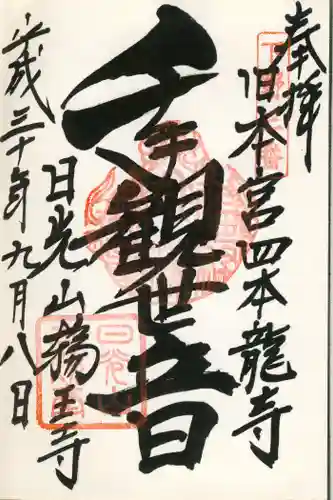 奉拝
旧本宮四本龍寺
千手観世音
日光山輪王寺
平成三十年九月八日